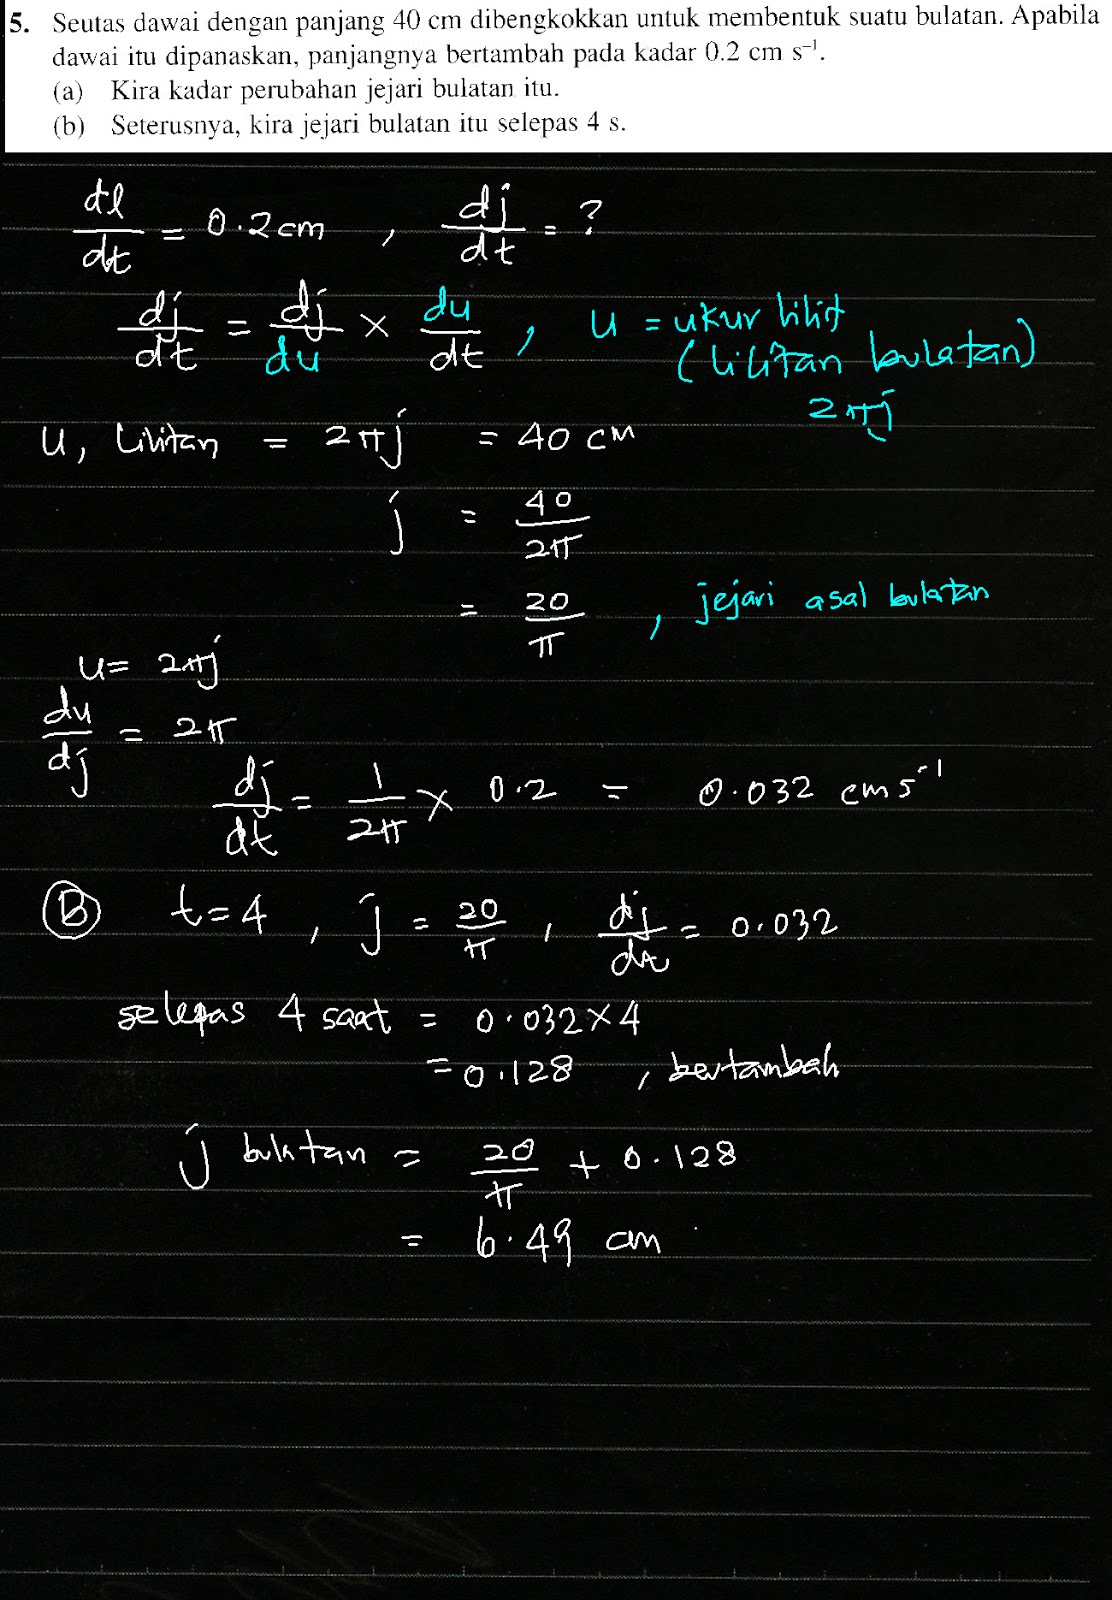 5. Seutas dawai dengan panjang 40 cm dibengkokkan untuk membentuk suatu bulatan. Apabila
dawai itu dipanaskan, panjangnya bertambah pada kadar 0.2 cm s⁻¹.
(a) Kira kadar perubahan jejari bulatan itu.
(b) Seterusnya, kira jejari bulatan itu selepas 4 s.
dl/dt = 0.2 cm , dj/dt = ?
dj/dt = dj/du × du/dt , u = ukur lilit
(lilitan bulatan)
2πj
u, lilitan = 2πj = 40 cm
j = 40/2π
= 20/π , jejari asal bulatan
u = 2πj
du/dj = 2π
dj/dt = 1/2π × 0.2 = 0.032 cm s⁻¹
B t=4 , j = 20/π , dj/dt = 0.032
selepas 4 saat = 0.032×4
= 0.128 , bertambah
j bulatan = 20/π + 0.128
= 6.49 cm